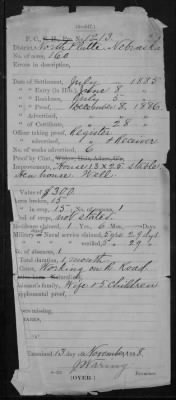 (4-207.)
F. C., No. 1213
District, North Platte Nebraska
No. of acres, 160
Errors in description,
Date of Settlement, July 1885
" " Entry June 8
" " Residence, July 5
" " Proof, December 8, 1886
" " Advertised,
" " Certificate, " 28 "
Officer taking proof, Register
" advertised, " & Receiver
No. of weeks advertised, 6
Proof by Clmt.,
Improvements, House 13 x 25 stable
Hen house Well
Value of $300.
Acres broken, 15
" in crop, 15 No. of seasons, 1
Kind of crops, not stated
Residence claimed, 1 Yrs. 6 Mos. Days
Military Naval service claimed, 5 yrs 29 days
" " " verified, 5 " 29 "
No. of absences, 1
Total duration, 1 month
Cause, Working on R. Road
Claimant's family, Wife & 5 children
Supplemental proof,
Papers missing,
REMARKS,
Examined 13 day November 188
J Waring
Examiner.
(OVER.)